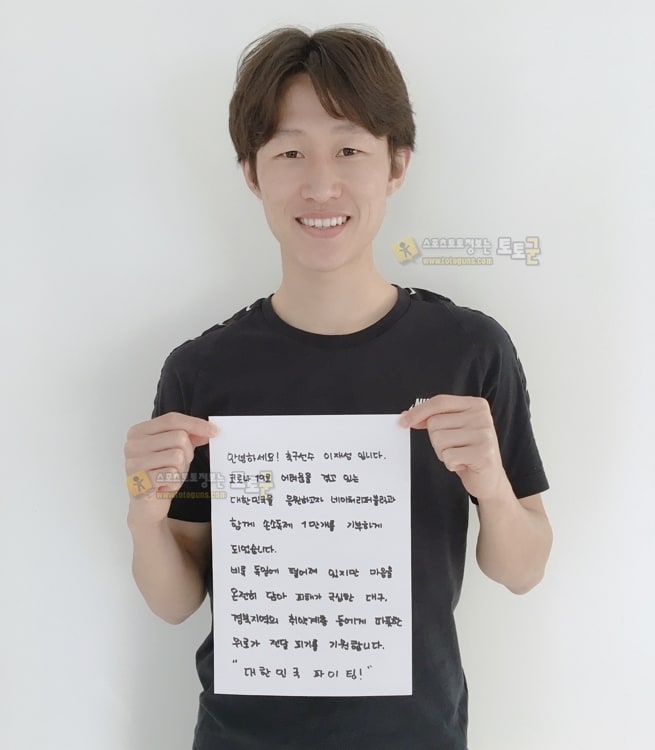 스포츠토토정보는 토토군
www.totoguns.com
안녕하세요! 축구선수 이재성 입니다.
코로나 19로 어려움을 겪고 있는
대한민국을 응원하고자 네이처리퍼블릭과
함께 손소독제 1만개를 기부하게
되었습니다.
비록 독일에 떨어져 있지만 마음을
온전히 담아 피해가 극심한 대구,
경북지역의 취약계층 등에게 따뜻한
위로가 전달 되기를 기원합니다.
"대한민국 파이팅!"
스포츠토토정보는 토토군
www.totoguns.com